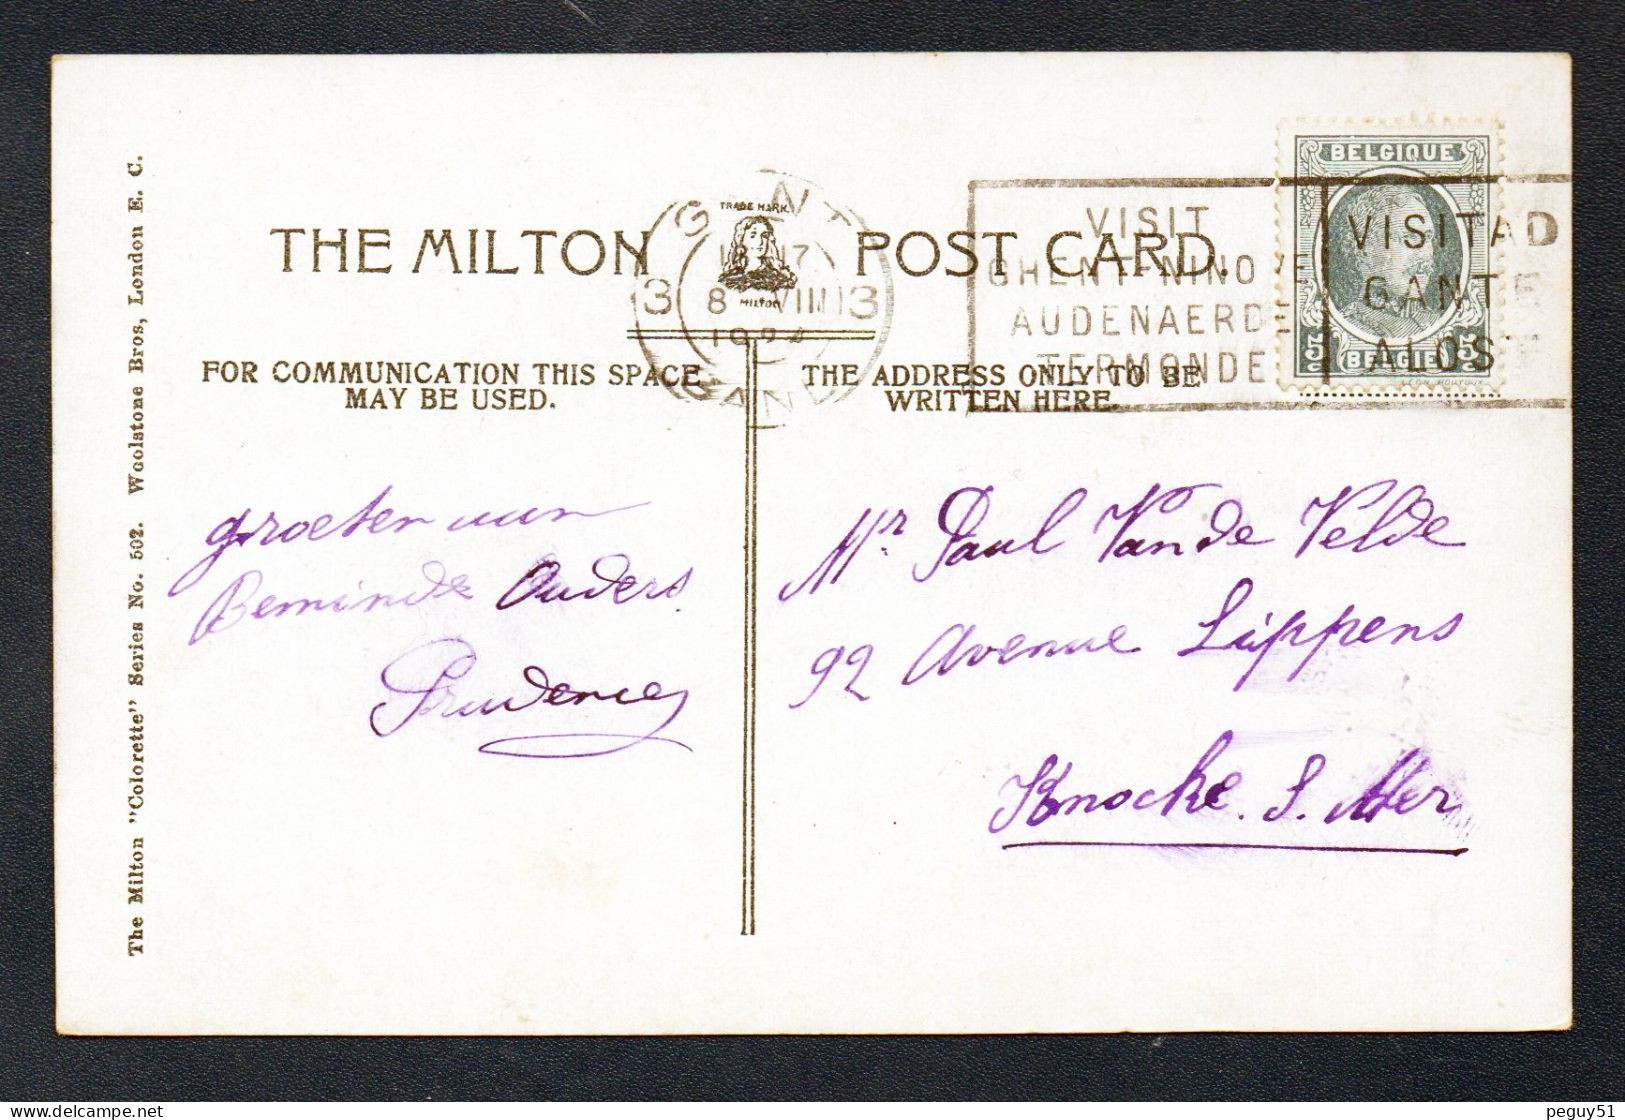 THE MILTON POST CARD.
TRADE MARK.
MILTON
FOR COMMUNICATION THIS SPACE
MAY BE USED.
THE ADDRESS ONLY TO BE
WRITTEN HERE.
GENT
17
3 8 VIII 3
1924
GAND
VISIT
GHENT-NINO
AUDENAERD
TERMONDE
VISITAD
GANTE
ALOST
BELGIQUE
5 BELGIË 5
The Milton "Colorette" Series No. 502. Woolstone Bros, London E. C.
groeten aan
Beminde Ouders
Prudence
Mr Paul Van de Velde
92 Avenue Lippens
Knocke. S. Mer
peguy51